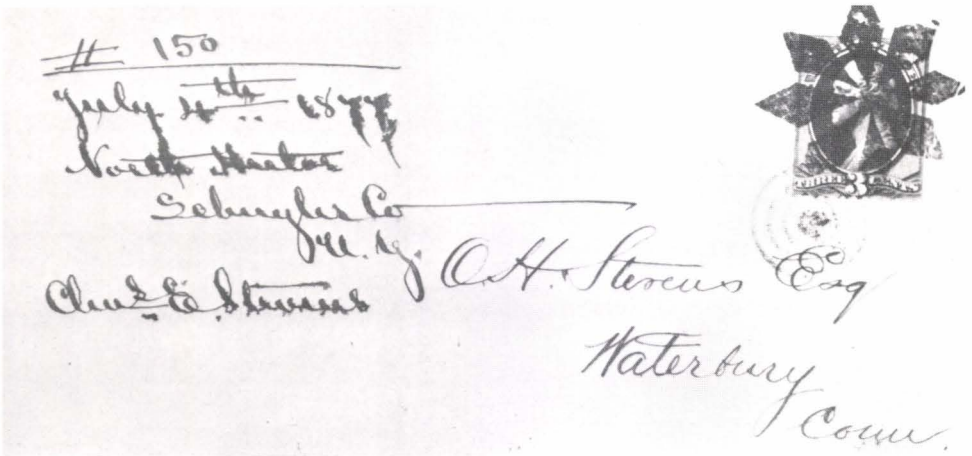 # 150
July 4th 1877
North Hector
Schuyler Co
N. Y.
Chas E. Stevens
THREE 3 CENTS
O. H. Stevens Esq
Waterbury
Conn.